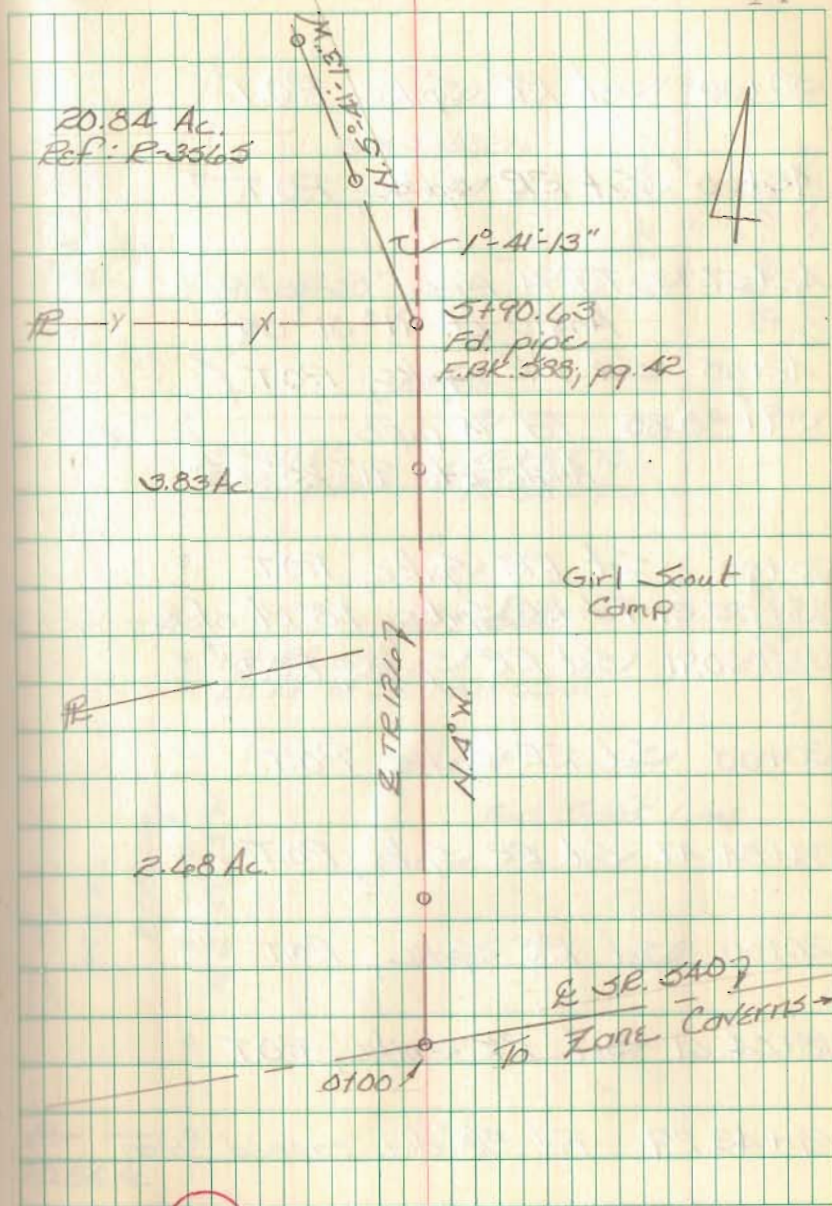 N.5°-41'-13"W.
20.84 Ac.
Ref: R-3565
1°-41'-13"
5+90.63
Fd. pipe
F.BK. 588, pg. 42
PL
3.83 Ac.
Girl Scout
Camp
PL
℄ TR 1267
N.4°W.
2.68 Ac.
℄ SR. 540
To Zane Caverns →
0+00